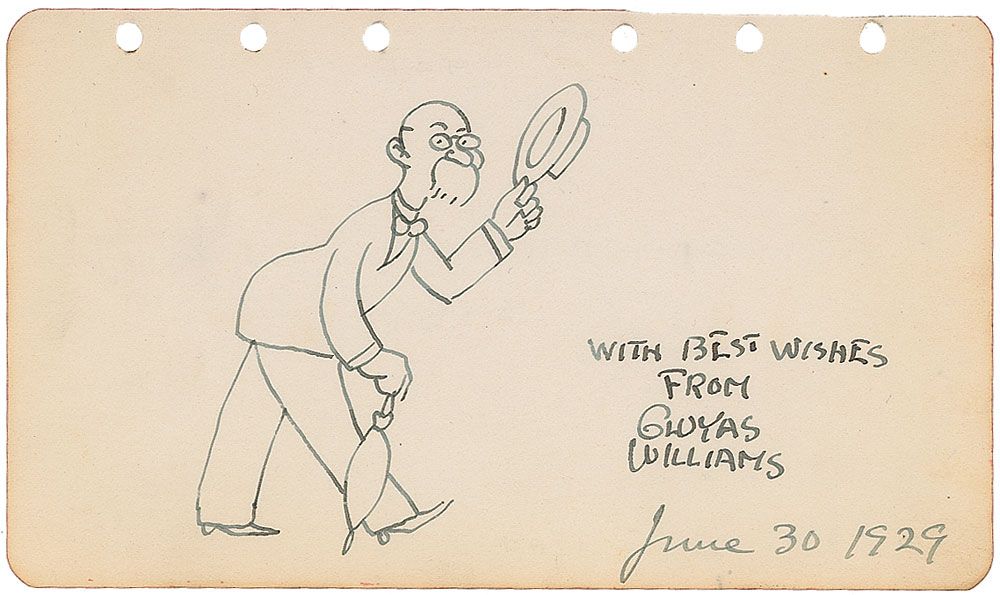 WITH BEST WISHES
FROM
GLUYAS
WILLIAMS
June 30 1929